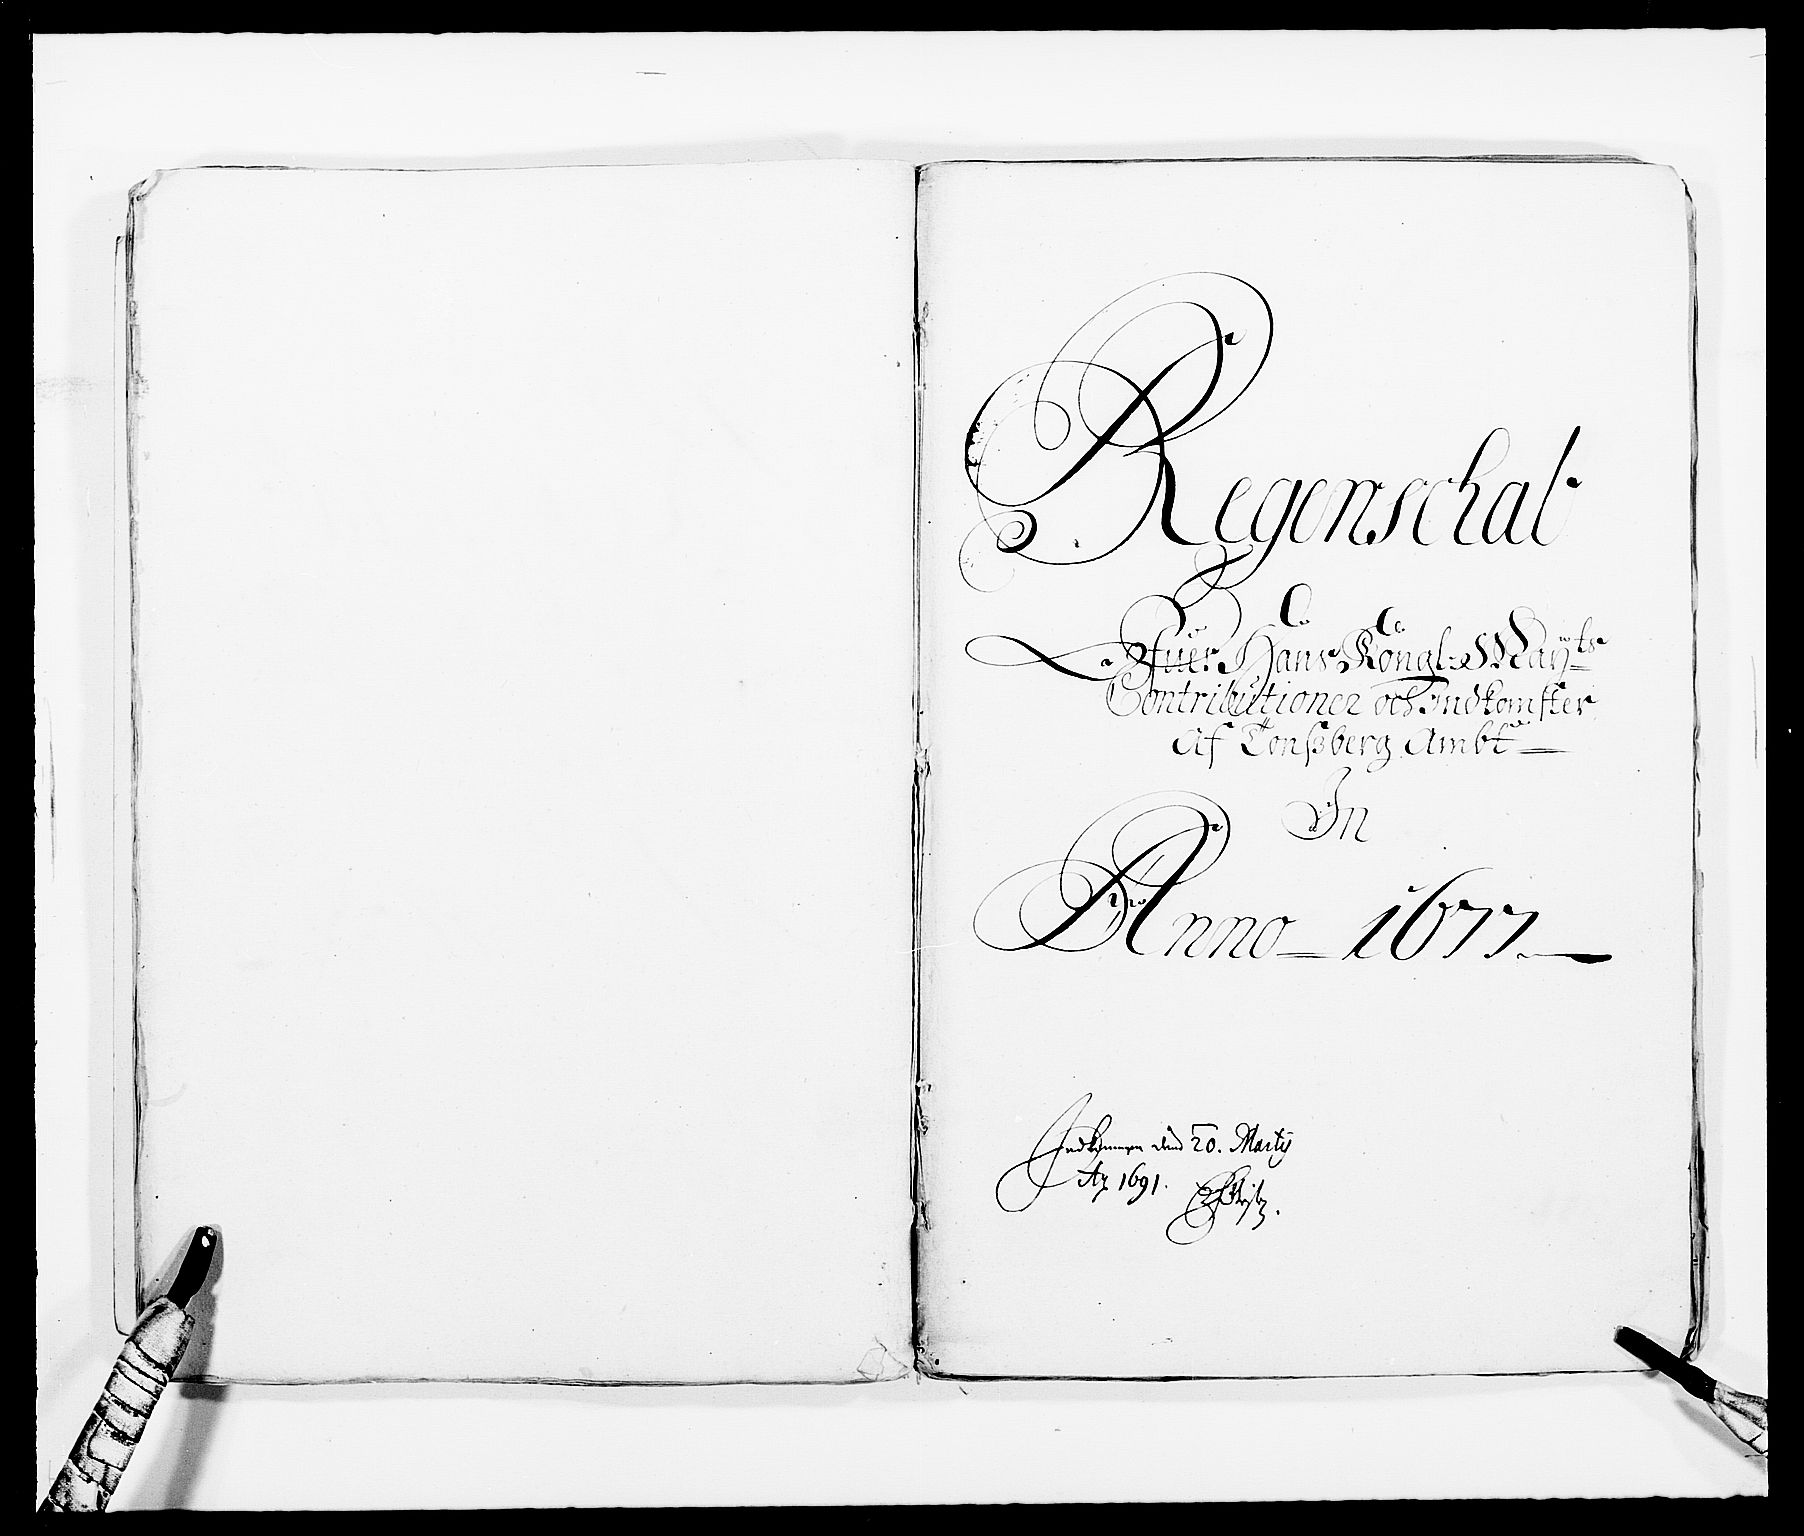 Regenschab
Ofuer Hans Kongl: May:ts
Contributioner och Indkomster
Af Tonßberg Ambt
In
Anno 1677
Indkommen dend 20. Martÿ
Ao 1691.